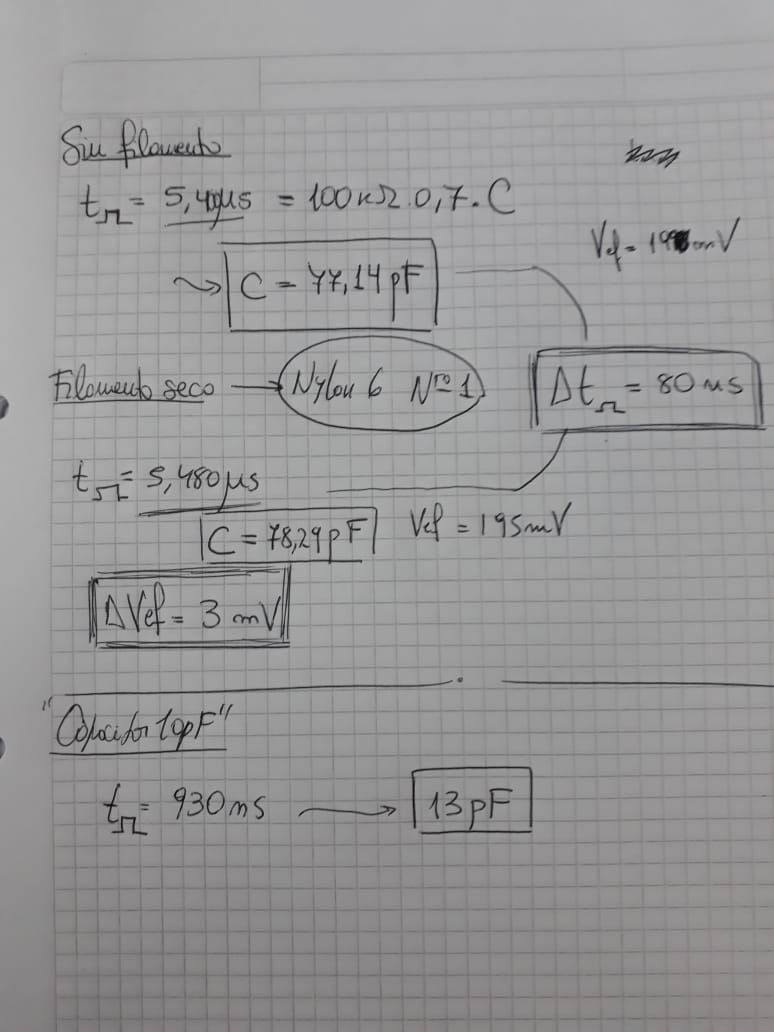 Sin filamento
t⎍ = 5,400µs = 100KΩ.0,7.C
Vef = mV
C = 77,14pF
Filamento seco → Nylon 6 Nro 1
Δt⎍ = 80 ns
t⎍ = 5,480µs
C = 78,29pF Vef = 195mV
ΔVef = 3 mV
"Capacitor 10pF"
t⎍ = 930ns → 13pF